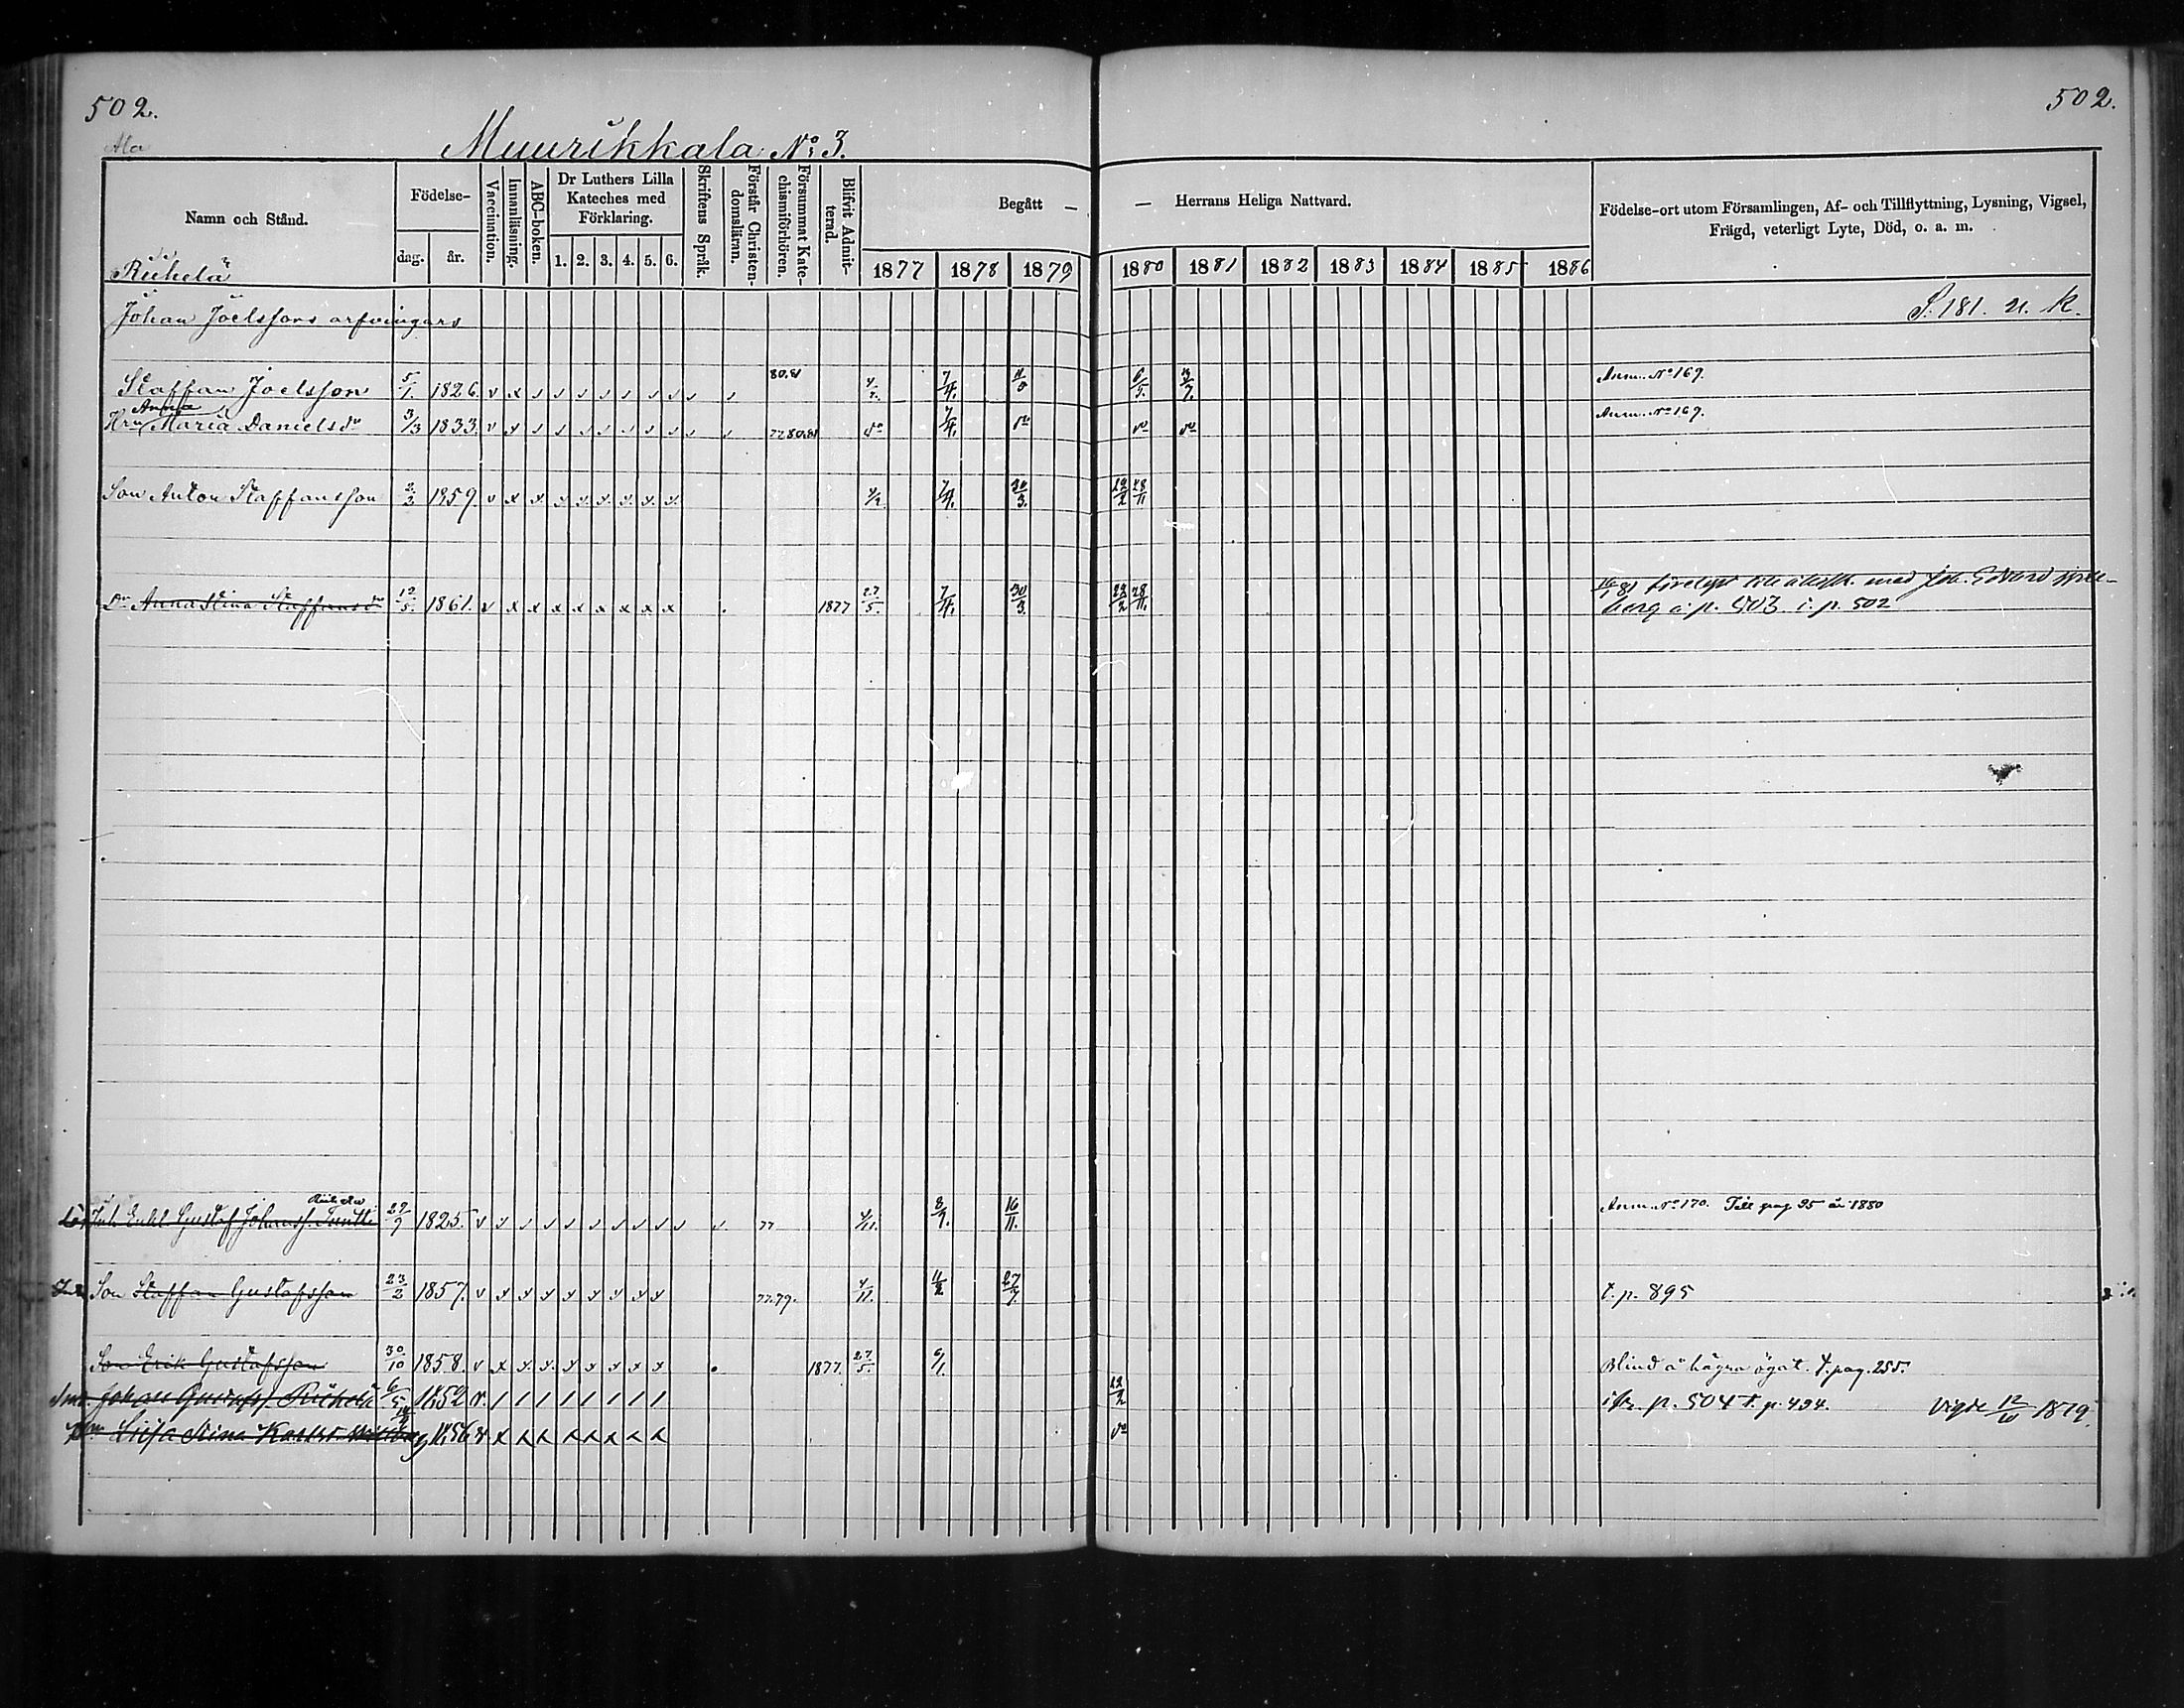 502.
502.
Ala
Muurikkala No: 3.
Namn och Stånd.
Födelse-
dag. år.
Vaccination.
Innanläsning.
ABC-boken.
Dr Luthers Lilla Kateches med Förklaring.
1. 2. 3. 4. 5. 6.
Skriftens Språk.
Förstår Christendomsläran.
Försummat Katechismiförhören.
Blifvit Admitterad.
Begått —
— Herrans Heliga Nattvard.
1877 1878 1879 1880 1881 1882 1883 1884 1885 1886
Födelse-ort utom Församlingen, Af- och Tillflyttning, Lysning, Vigsel,
Frägd, veterligt Lyte, Död, o. a. m.
Riihelä
Johan Joelssons arfvingars
S. 181. n. k.
Staffan Joelsson 5/1. 1826. v x 80.81 7/4. 6/5. Anm. No 169.
Anna
Hru Maria Danielsdr 3/3 1833. v 77.80.81 do 7/4. do do do Anm. No 169.
Son Anton Staffansson 2/3 1859. v x x 7/4. 30/3. 22/2 28/11
Dr Anna Stina Staffansdr 12/5. 1861. v x x x x x x x x 1877 27/5. 7/4. 30/3. 22/2 28/11. till äktsk. med Joh. Edvard
berg å p. 503. i. p. 502
Riihelä
Inh. Enkl. Gustaf Johanss. 29/9 1825. v 77 4/11. 8/9. 16/11. Anm. No 170. Till pag 95 år 1880
Son Staffan Gustafsson 23/2 1857. v 77.79. 4/11. 11/2 27/7. t. p. 895
Son Erik Gustafsson 30/10 1858. v x 1877. 27/5. 6/1. Blind å högra ögat. t. pag. 255.
Johan Gustafss. Riihelä 6/5 1852 v. / / / / / / / / 22/2 ifr. p. 504 t. p. 494. Vigde 12/10 1879.
Liisa Stina 1856 v x x x x x x x x do